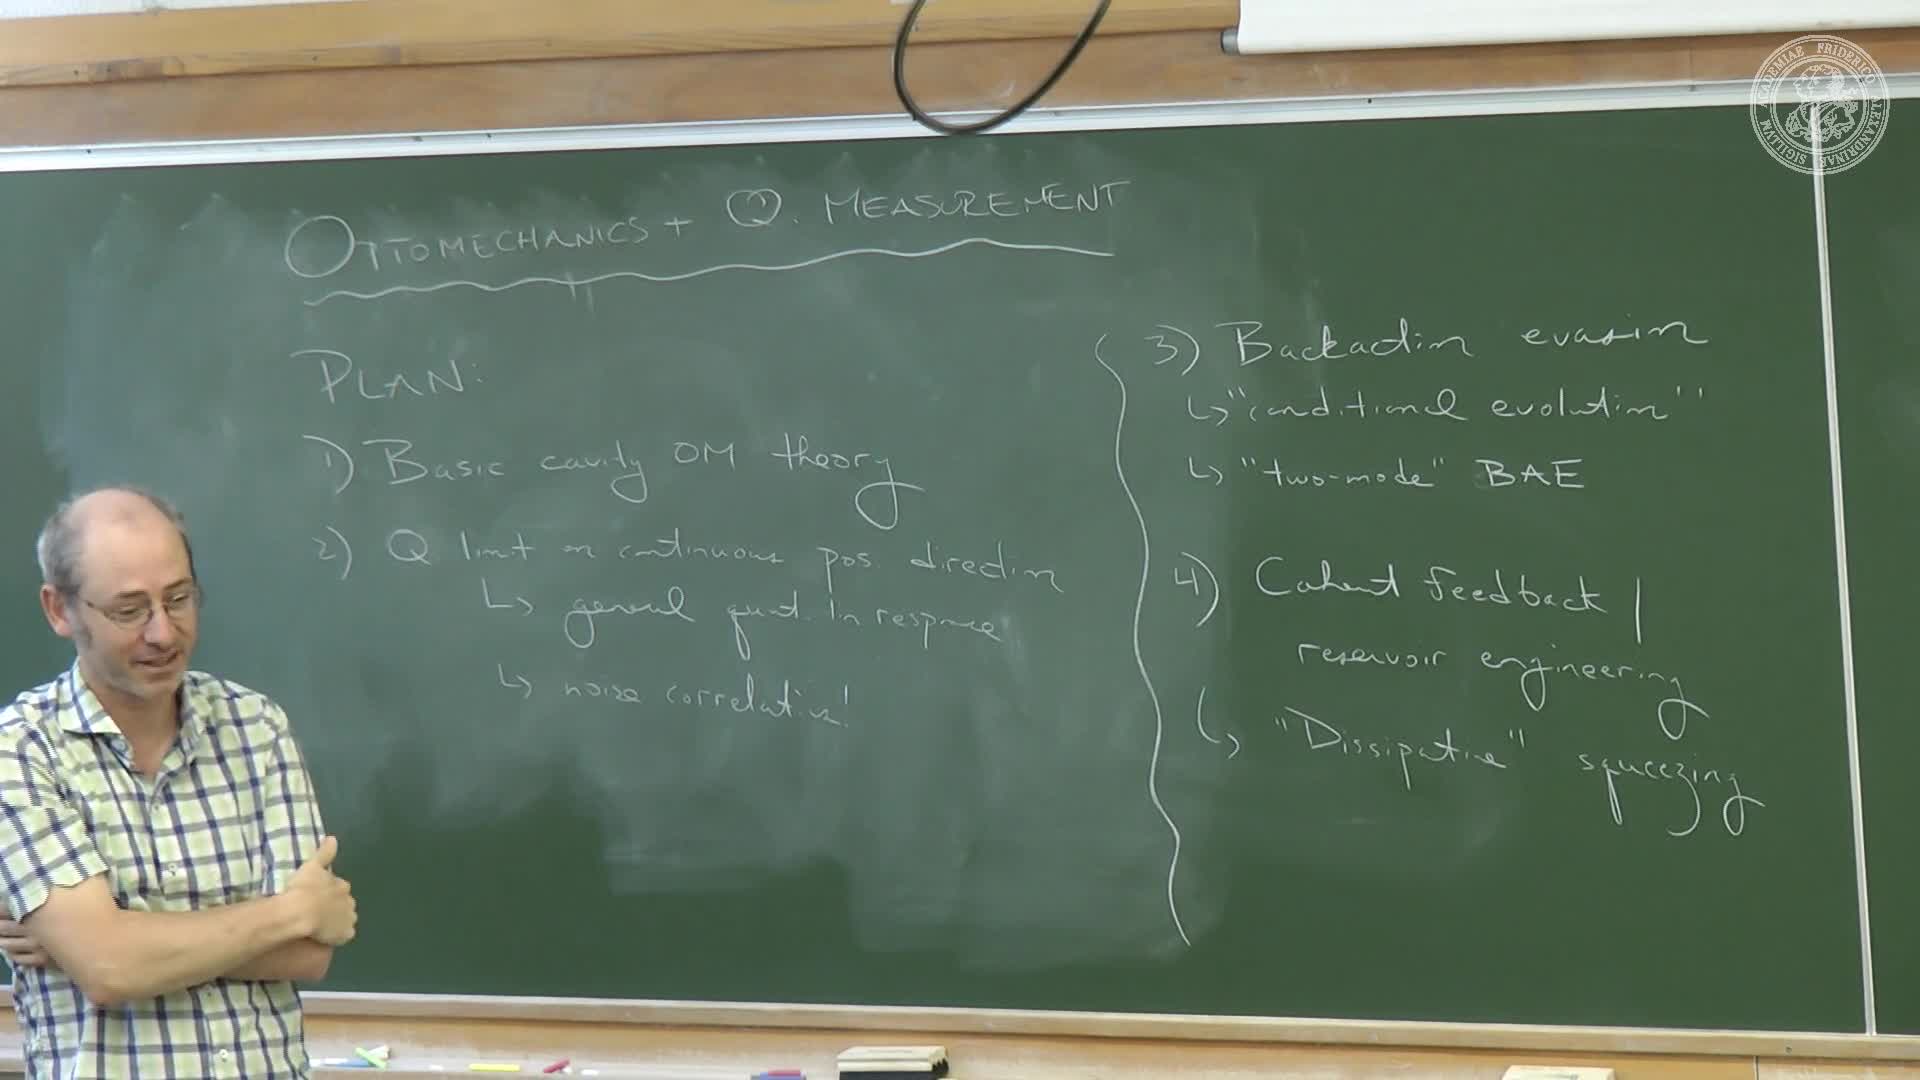 OPTOMECHANICS + Q. MEASUREMENT
PLAN:
1) Basic cavity OM theory
2) Q limit on continuous pos. direction
↳ general quant. lin response
↳ noise correlations!
3) Backaction evasion
↳ "conditional evolution"
↳ "two-mode" BAE
4) Coherent feedback /
reservoir engineering
↳ "Dissipative" squeezing
ACADEMIAE FRIDERICO ALEXANDRINAE SIGILLVM